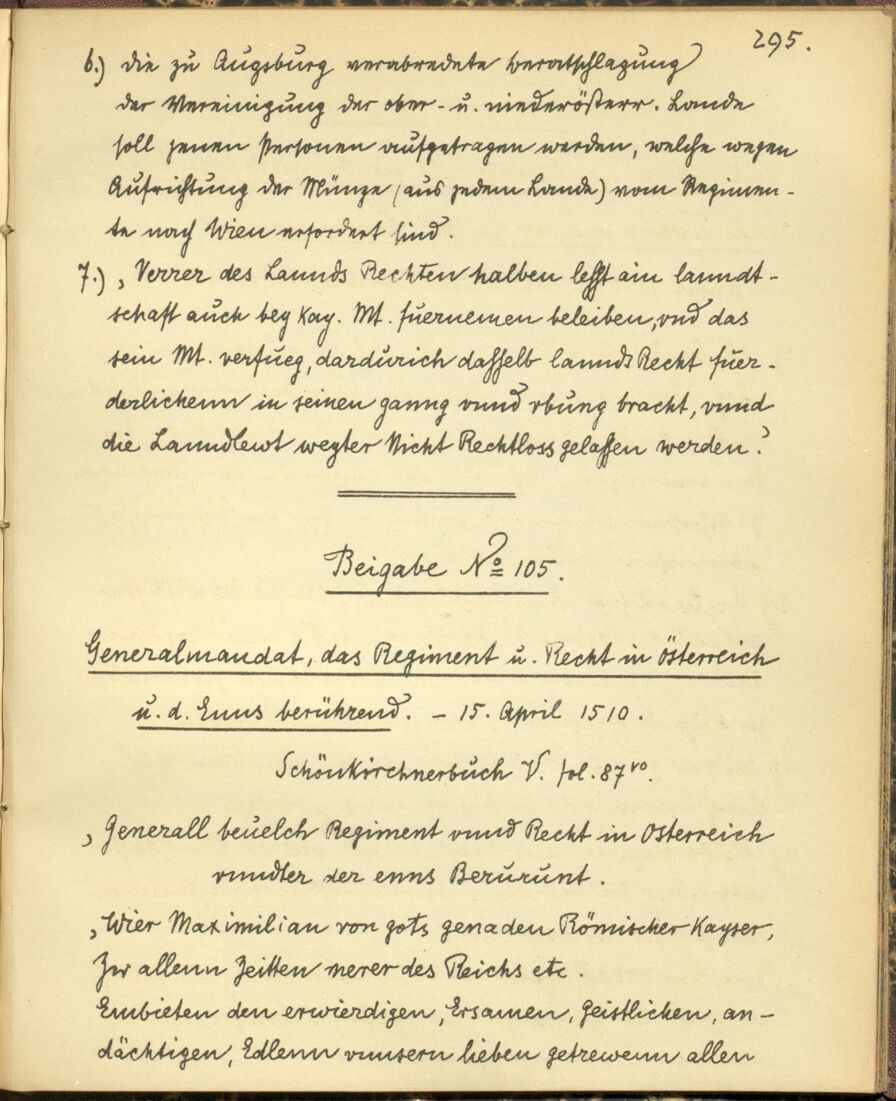 295.
6.) die zu Augsburg verabredete Beratschlagung
der Vereinigung der ober- u. niederösterr. Lande
soll jenen Personen aufgetragen werden, welche wegen
Aufrichtung der Münze (aus jedem Lande) vom Regimen-
te nach Wien erfordert sind.
7.) „Verrer des Lannds Rechten halben lesst ain lanndt-
schaft auch bey Kay. Mt. fuernemen beleiben, vnd das
sein Mt. verfueg, dardurich dasselb lannds Recht fuer-
derlichenn in seinen ganng vnnd vbung bracht, vnnd
die Lanndlewt weyter Nicht Rechtloss gelassen werden.“
Beigabe No 105.
Generalmandat, das Regiment u. Recht in Österreich
u. d. Enns berührend. – 15. April 1510.
Schönkirchnerbuch V. fol. 87 vo.
„Generall beuelch Regiment vnnd Recht in Osterreich
vnndter der enns Berurunt.
„Wier Maximilian von gots genaden Römischer Kayser,
Zw allenn Zeitten merer des Reichs etc.
Embieten den erwierdigen, Ersamen, Geistlichen, an-
dächtigen, Edlenn vnnsern lieben getrewenn allen